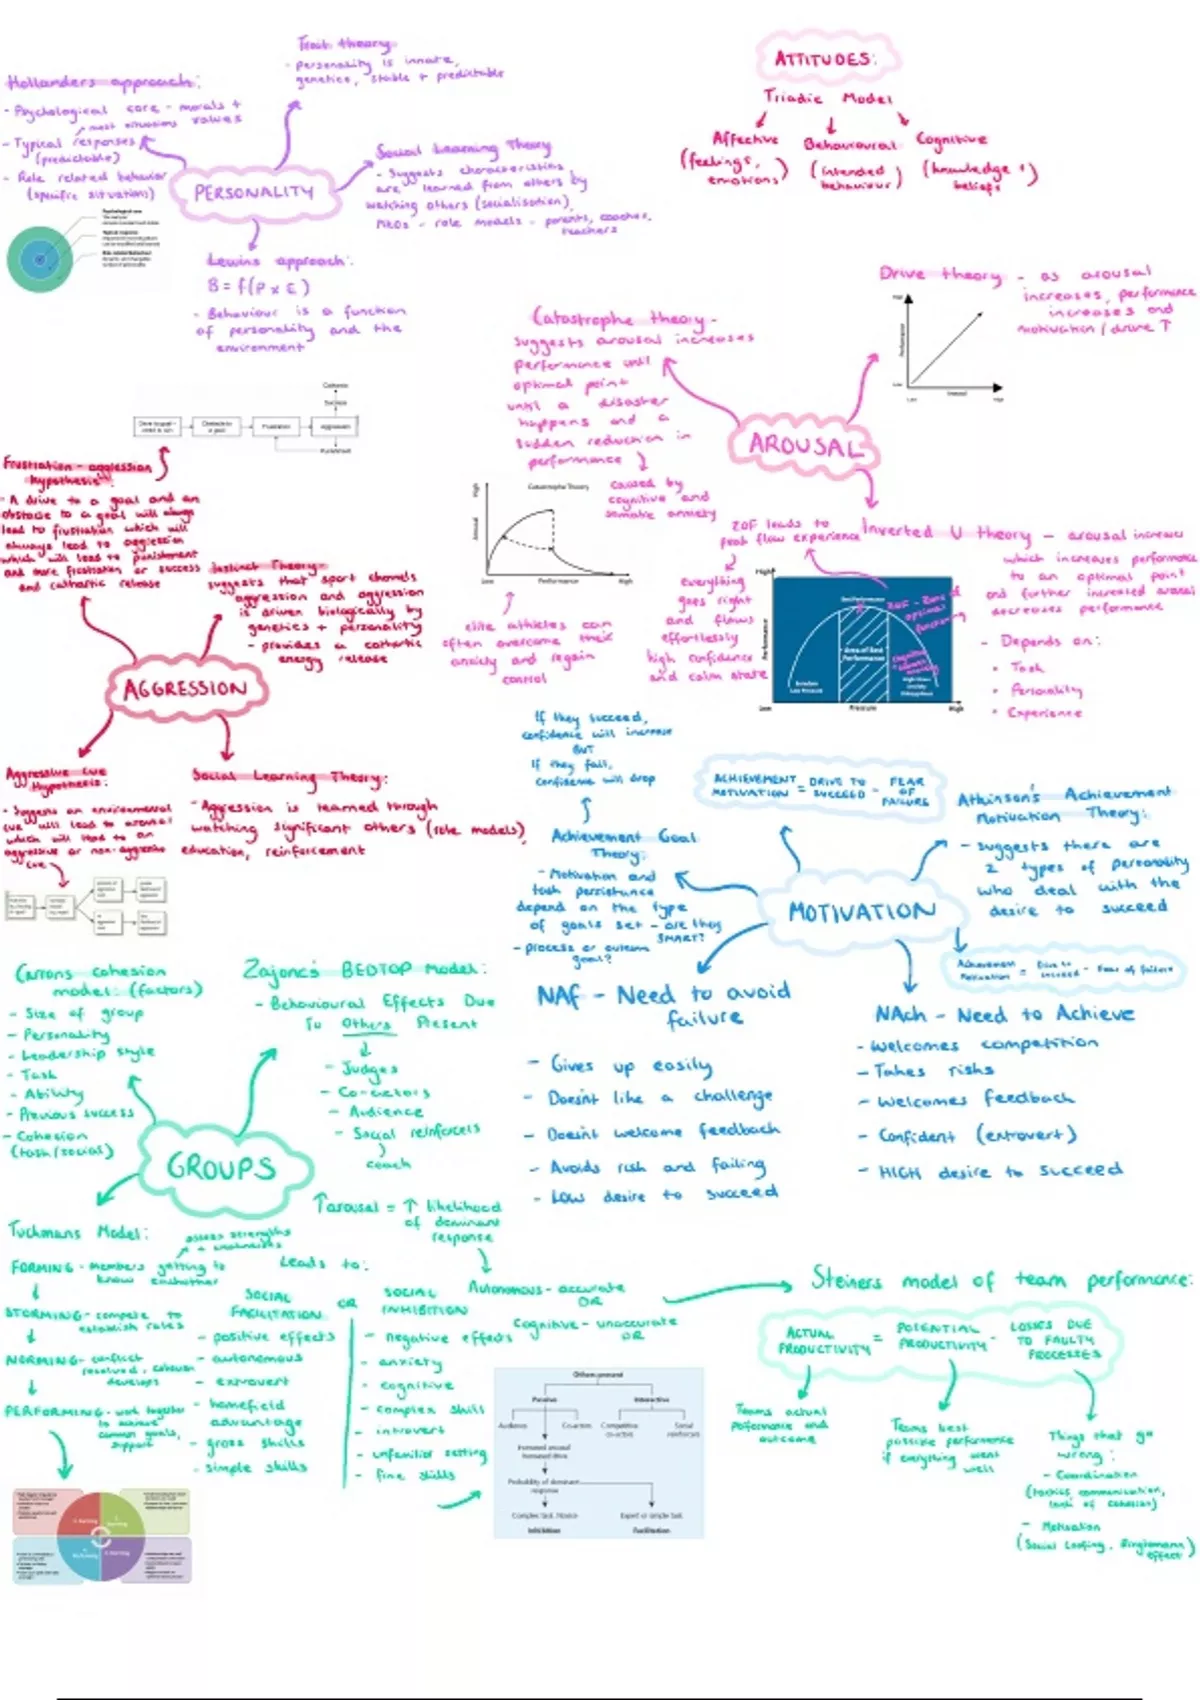 Trait theory
- personality is innate,
genetics, stable + predictable
Hollanders approach:
- Psychological core - morals +
values
most situations
- Typical responses
(predictable)
- Role related behaviour
(specific situations)
PERSONALITY
Social Learning Theory
- Suggests characteristics
are learned from others by
watching others (socialisation),
role models - parents, coaches,
teachers
Lewins approach:
B = f(P x E)
- Behaviour is a function
of personality and the
environment
ATTITUDES:
Triadic Model
Affective
(feelings,
emotions)
Behavioural
(intended
behaviour)
Cognitive
(knowledge +
beliefs)
Drive theory - as arousal
increases, performance
increases and
motivation/drive ↑
Performance
High
Low
Low
Arousal
High
Catastrophe theory -
suggests arousal increases
performance until
optimal point
until a disaster
happens and a
sudden reduction in
performance
caused by
cognitive and
somatic anxiety
Catastrophe Theory
High
Arousal
Low
Performance
High
elite athletes can
often overcome their
anxiety and regain
control
AROUSAL
Inverted U theory - arousal increases
which increases performance
to an optimal point
and further increased arousal
decreases performance
- Depends on:
• Task
• Personality
• Experience
ZOF leads to
peak flow experience
everything
goes right
and flows
effortlessly
high confidence
and calm state
High
Performance
Low
Best Performance
Area of Best
Performance
ZOF - Zone of
optimal
functioning
Boredom
Low Pressure
Pressure
High
Catharsis
Success
Drive to goal -
need to win
Obstacle to
a goal
Frustration
Aggression
Punishment
Frustration - aggression
hypothesis:
- A drive to a goal and an
obstacle to a goal will always
lead to frustration which will
always lead to aggression
which will lead to punishment
and more frustration or success
and cathartic release
Instinct Theory -
suggests that sport channels
aggression and aggression
is driven biologically by
genetics + personality
- provides a cathartic
energy release
AGGRESSION
Aggressive cue
Hypothesis:
- Suggests an environmental
cue will lead to arousal
which will lead to an
aggressive or non-aggressive
cue
Social Learning Theory:
- Aggression is learned through
watching significant others (role models),
education, reinforcement
If they succeed,
confidence will increase
BUT
If they fail,
confidence will drop
Achievement Goal
Theory:
- Motivation and
task persistance
depend on the type
of goals set - are they
SMART?
- process or outcome
goal?
ACHIEVEMENT MOTIVATION = DRIVE TO SUCCEED - FEAR OF FAILURE
Atkinson's Achievement
Motivation Theory:
- suggests there are
2 types of personality
who deal with the
desire to succeed
MOTIVATION
Achievement Motivation = Drive to succeed - Fear of failure
NAF - Need to avoid
failure
- Gives up easily
- Doesn't like a challenge
- Doesn't welcome feedback
- Avoids risk and failing
- LOW desire to succeed
NAch - Need to Achieve
- Welcomes competition
- Takes risks
- Welcomes feedback
- Confident (extrovert)
- HIGH desire to succeed
Carrons cohesion
model: (factors)
- Size of group
- Personality
- Leadership style
- Task
- Ability
- Previous success
- Cohesion
(task/social)
Zajonc's BEDTOP Model:
- Behavioural Effects Due
To Others Present
- Judges
- Co-actors
- Audience
- Social reinforcers
coach
GROUPS
↑arousal = ↑ likelihood
of dominant
response
Autonomous - accurate
OR
Cognitive - unaccurate
OR
Tuckmans Model:
assess strengths
+ weaknesses
FORMING - members getting to
know eachother
STORMING - compete to
establish roles
NORMING - conflict
resolved, cohesion
develops
PERFORMING - work together
to achieve
common goals,
support
Leads to:
SOCIAL
FACILITATION
OR
SOCIAL
INHIBITION
- positive effects
- autonomous
- extrovert
- homefield
advantage
- gross skills
- simple skills
- negative effects
- anxiety
- cognitive
- complex skill
- introvert
- unfamiliar setting
- fine skills
Others present
Passive
Interactive
Audience
Co-actors
Competitive
co-actors
Social
reinforcers
Increased arousal
Increased drive
Probability of dominant
response
Complex task, Novice
Inhibition
Expert or simple task
Facilitation
Steiners model of team performance:
ACTUAL PRODUCTIVITY = POTENTIAL PRODUCTIVITY - LOSSES DUE TO FAULTY PROCESSES
Teams actual
performance and
outcome
Teams best
possible performance
if everything went
well
Things that go
wrong:
- Coordination
(tactics communication,
lack of cohesion)
- Motivation
(Social Loafing, Ringlemann
effect)